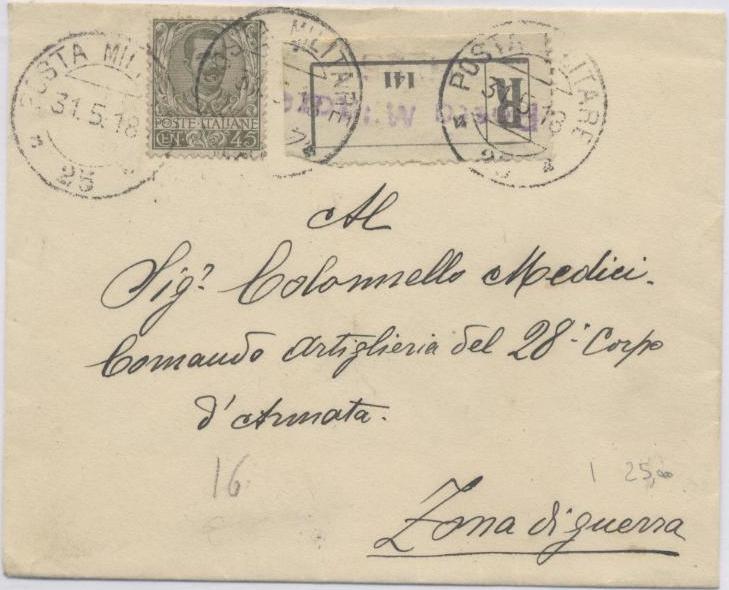 POSTA MILITARE
31.5.18
25
POSTE·ITALIANE
CENT 45
POSTA MILITARE
R
141
Posta Militare
POSTA MILITARE
25
Al
Sig.r Colonnello Medici.
Comando Artiglieria del 28° Corpo
d'Armata.
16
1 25,00
Zona di guerra